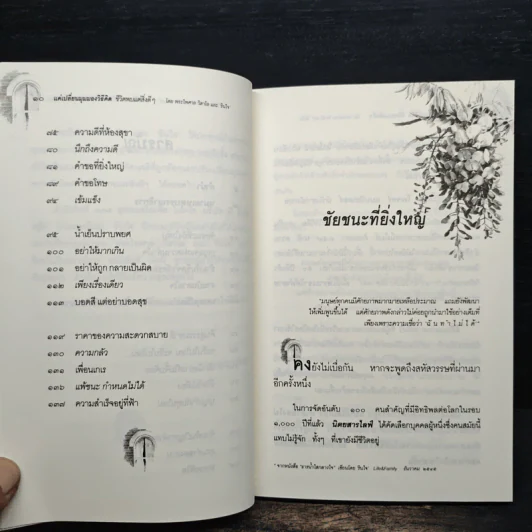 ๑๐ แค่เปลี่ยนมุมมองวิธีคิด ชีวิตพบแต่สิ่งดีๆ
๗๕ ความดีที่ห้องสุขา
๘๐ นึกถึงความดี
๘๑ คำขอที่ยิ่งใหญ่
๘๙ คำขอโทษ
๙๔ เข้มแข็ง
๙๕ น้ำเย็นปราบพยศ
๑๐๐ อย่าให้มากเกิน
๑๐๑ อย่าให้ถูกกลายเป็นผิด
๑๑๒ เพียงเรื่องเดียว
๑๑๓ บอดสี แต่อย่าบอดสุข
๑๑๙ ราคาของความสะดวกสบาย
๑๓๐ ความกลัว
๑๓๑ เพื่อนเกเร
๑๓๖ แพ้ชนะ กำหนดไม่ได้
๑๓๗ ความสำเร็จอยู่ที่ฟ้า
ชัยชนะที่ยิ่งใหญ่
"มนุษย์ทุกคนมีศักยภาพมากมายเหลือประมาณ แถมยังพัฒนา
ให้เพิ่มพูนขึ้นได้ แต่ศักยภาพดังกล่าวไม่ค่อยถูกนำมาใช้อย่างเต็มที่
เพียงเพราะความเชื่อว่า 'ฉันทำไม่ได้'"
คงยังไม่เบื่อกัน หากจะพูดถึงสหัสวรรษที่ผ่านมา
อีกครั้งหนึ่ง
ในการจัดอันดับ ๑๐๐ คนสำคัญที่มีอิทธิพลต่อโลกในรอบ
๑,๐๐๐ ปีที่แล้ว นิตยสารไลฟ์ ได้คัดเลือกบุคคลผู้หนึ่งซึ่งคนสมัยนี้
แทบไม่รู้จัก ทั้งๆ ที่เขายังมีชีวิตอยู่